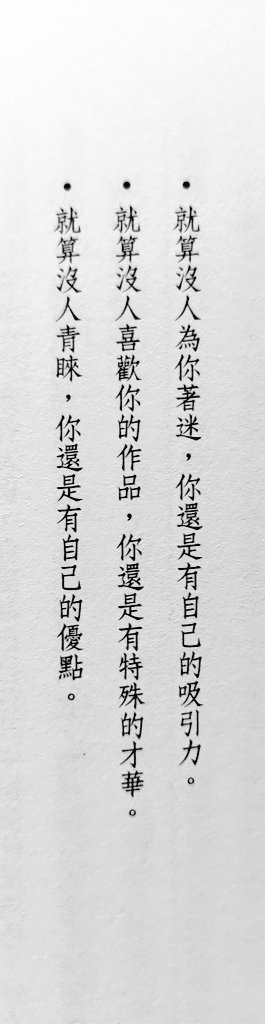 •就算沒人為你著迷，你還是有自己的吸引力。
•就算沒人喜歡你的作品，你還是有特殊的才華。
•就算沒人青睞，你還是有自己的優點。